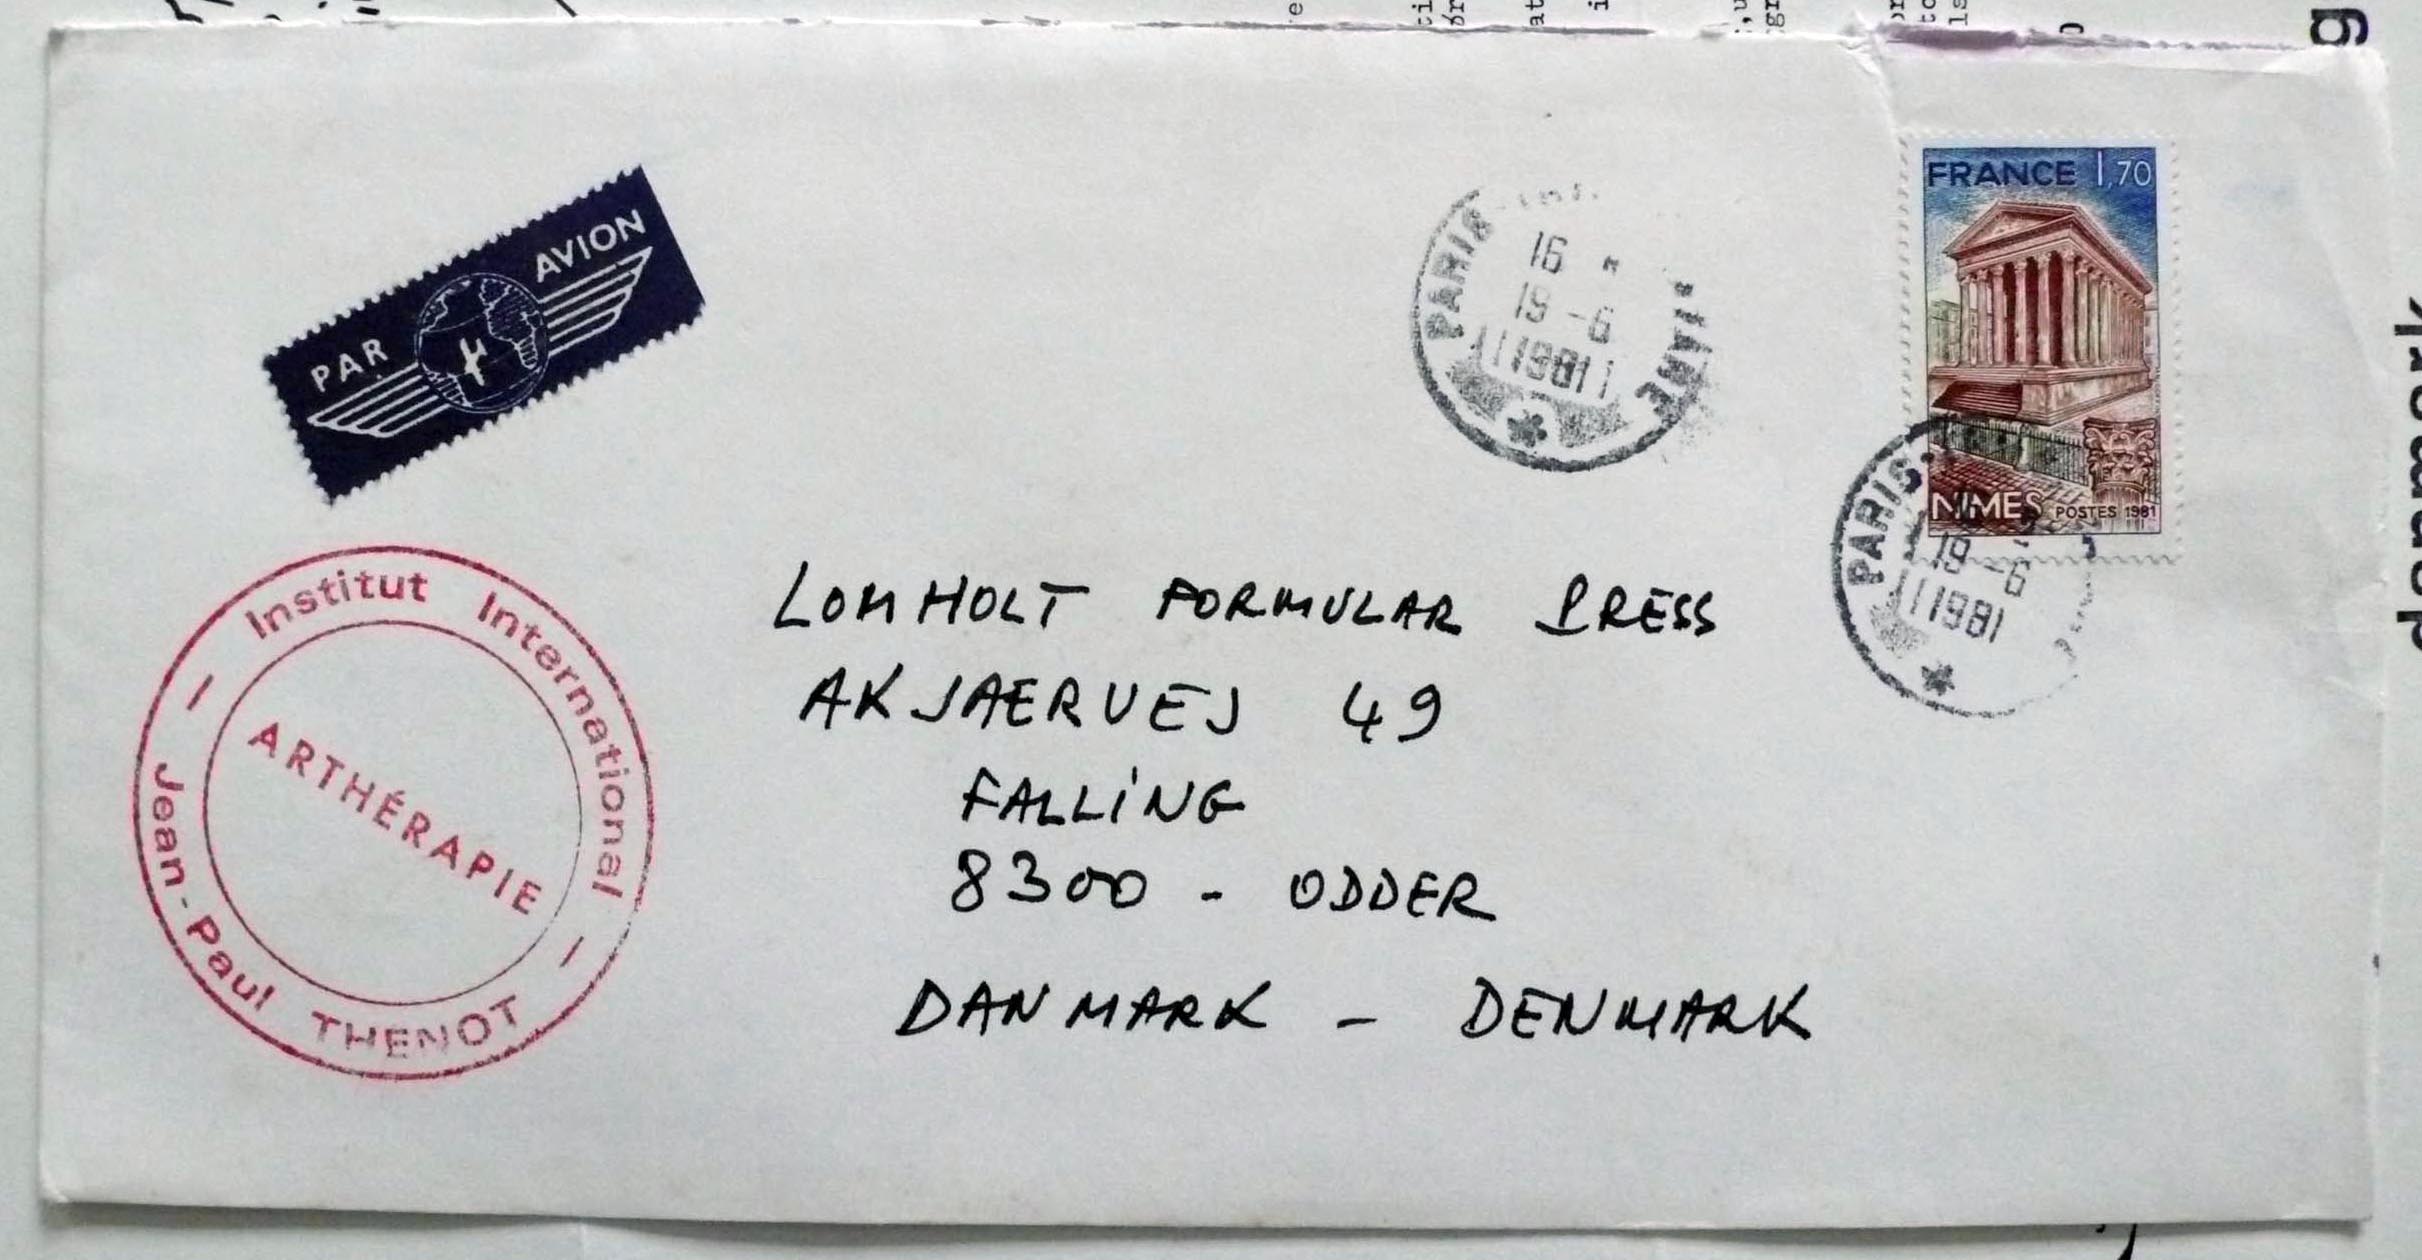 PAR AVION
FRANCE 1,70
NIMES POSTES 1981
PARIS
16 H
19 -6
1981
PARIS
19 -6
1981
Institut International
Jean-Paul THENOT
ARTHÉRAPIE
LOMHOLT FORMULAR PRESS
AKJAERVEJ 49
FALLING
8300 - ODDER
DANMARK - DENMARK